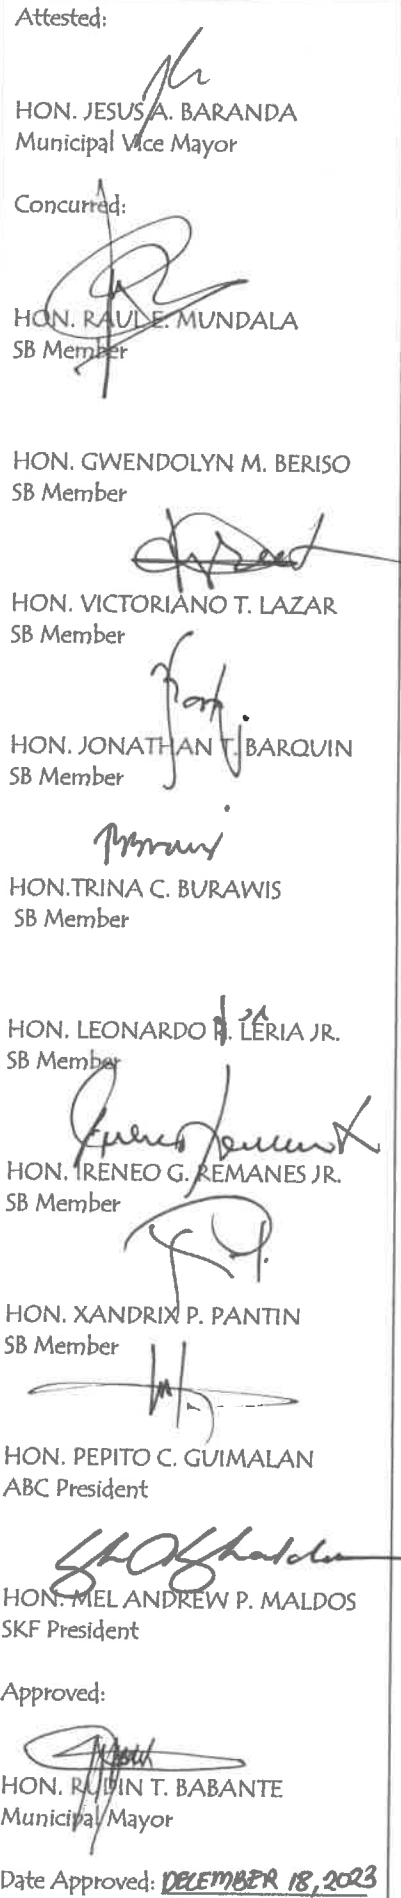 Attested:
HON. JESUS A. BARANDA
Municipal Vice Mayor
Concurred:
HON. RAUL E. MUNDALA
SB Member
HON. GWENDOLYN M. BERISO
SB Member
HON. VICTORIANO T. LAZAR
SB Member
HON. JONATHAN T. BARQUIN
SB Member
HON.TRINA C. BURAWIS
SB Member
HON. LEONARDO LERIA JR.
SB Member
HON. IRENEO G. REMANES JR.
SB Member
HON. XANDRIX P. PANTIN
SB Member
HON. PEPITO C. GUIMALAN
ABC President
HON. MEL ANDREW P. MALDOS
SKF President
Approved:
HON. RUDIN T. BABANTE
Municipal Mayor
Date Approved: DECEMBER 18, 2023